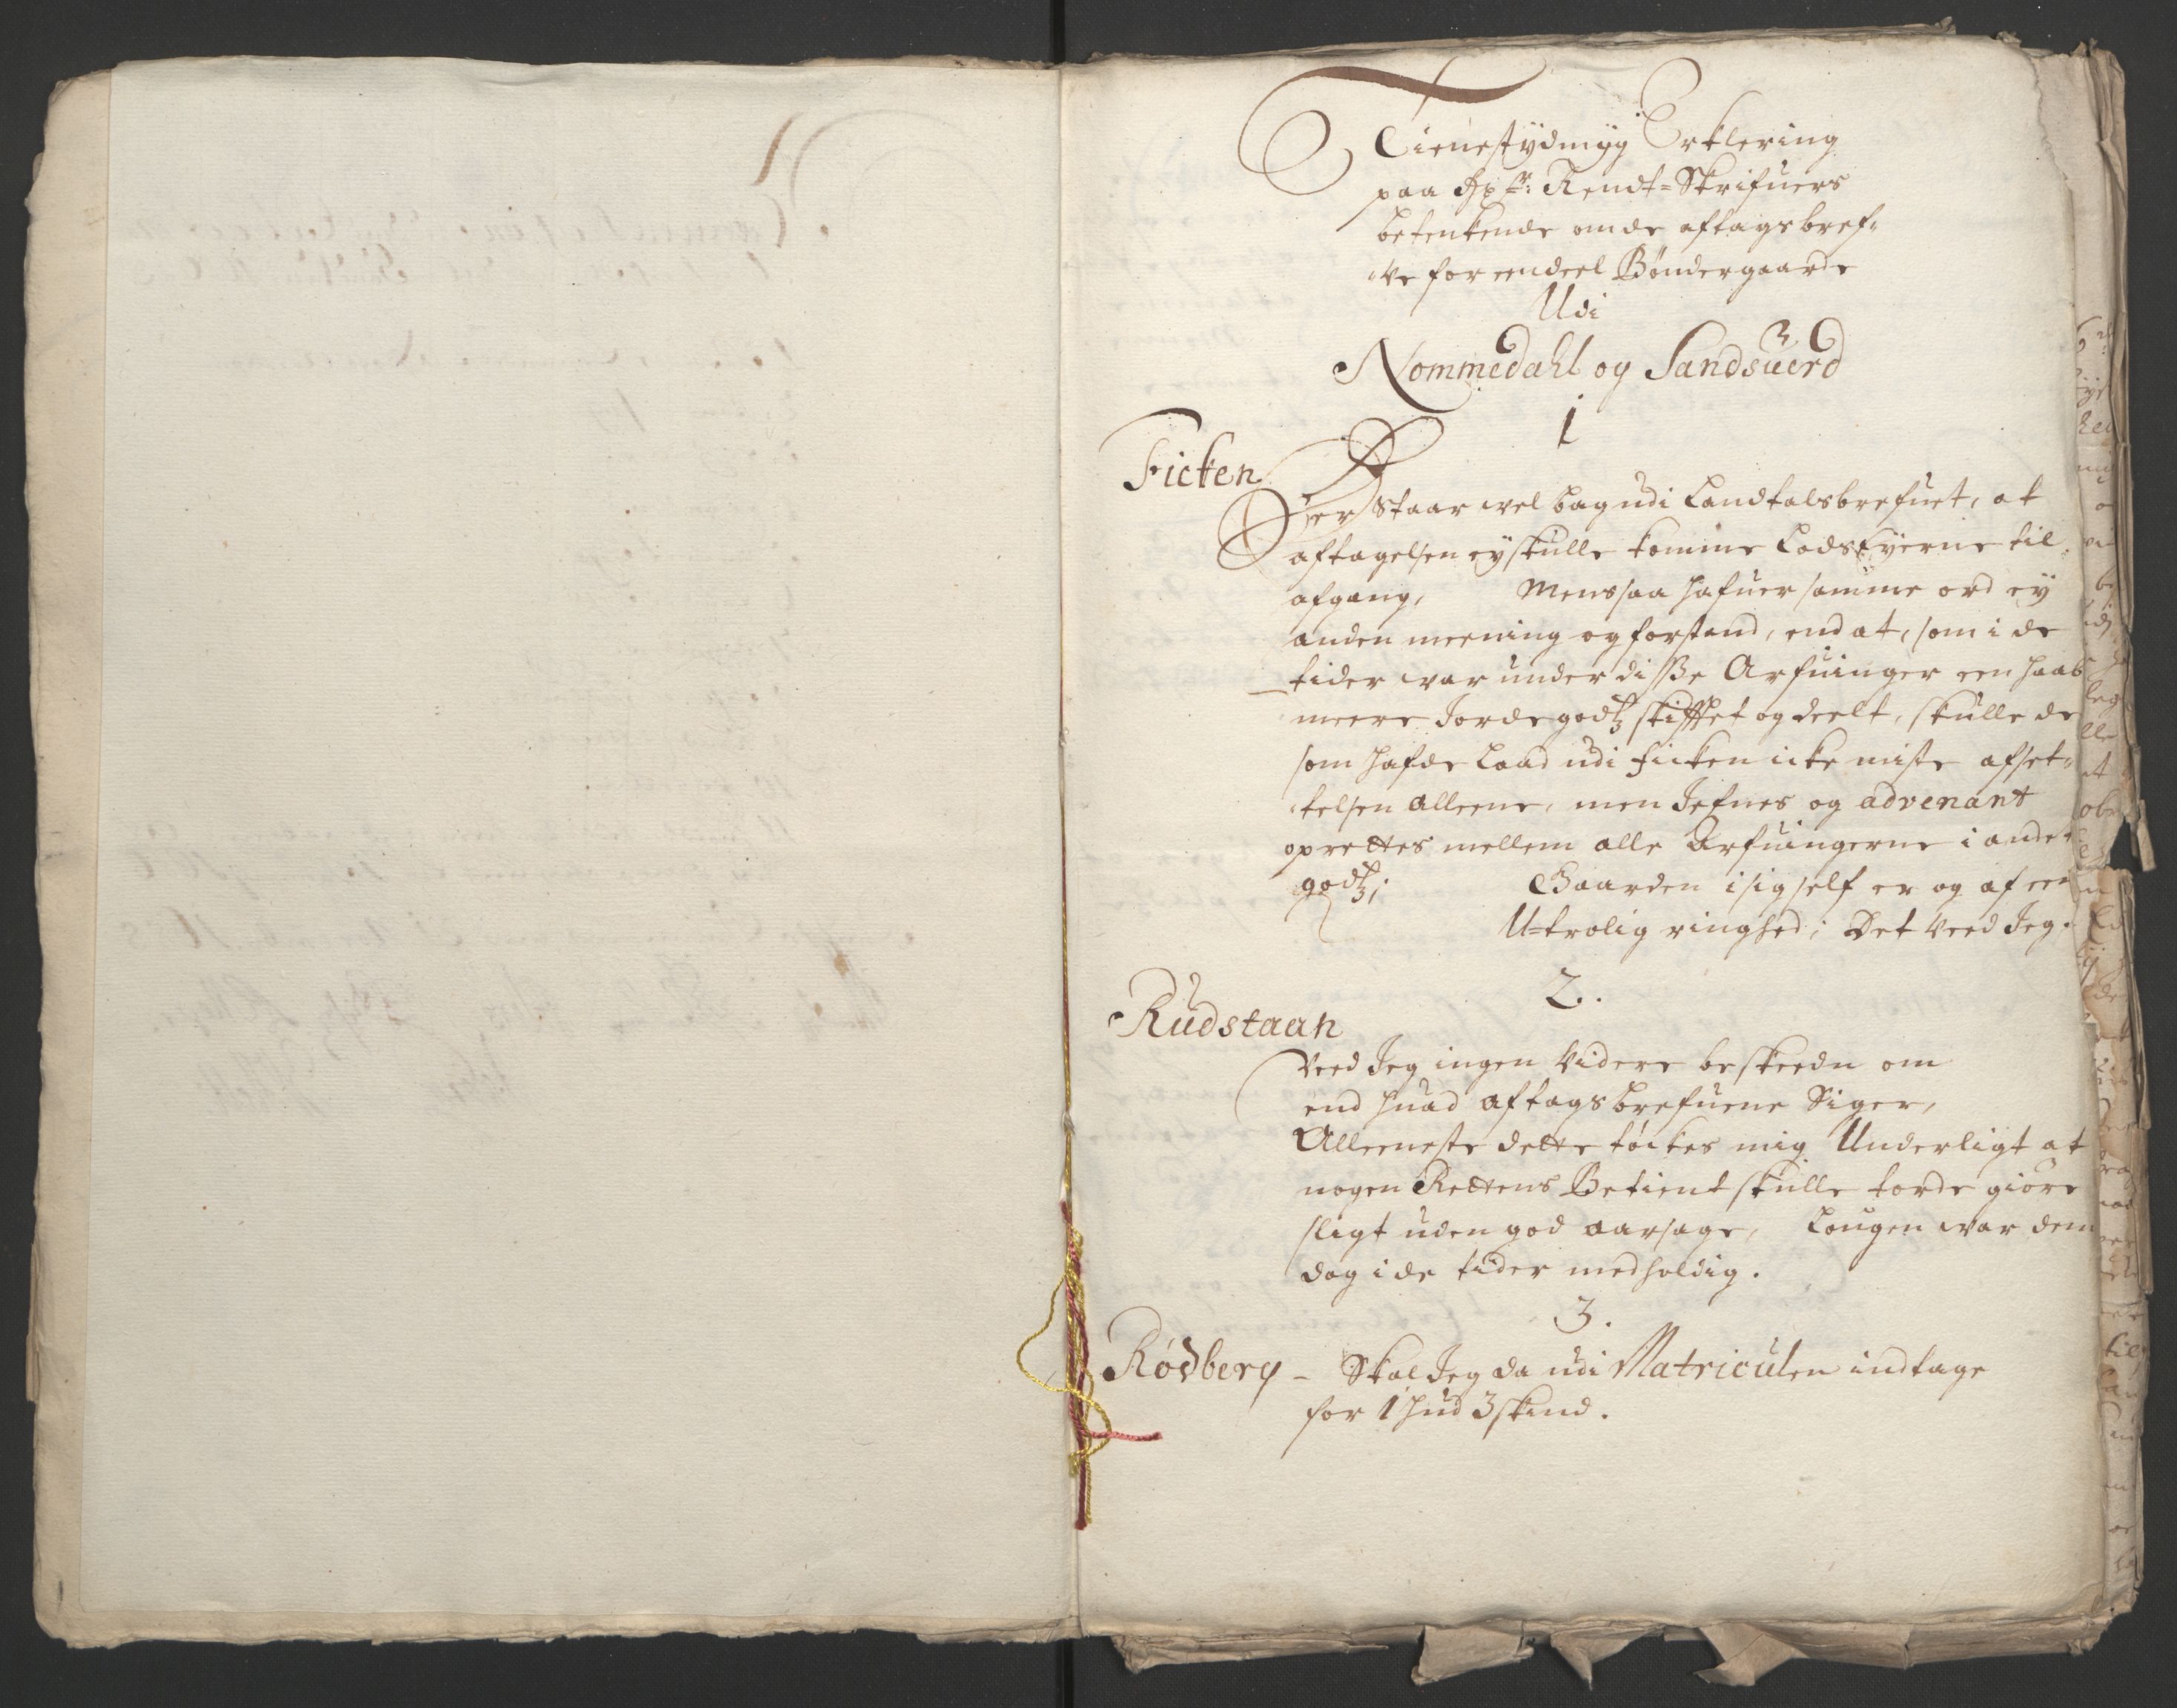 Tienestydmyg Erklering
paa Hr: Rendt=Skrifuers
betenkende om de aftagsbref=
=ve for een deel Bøndergaarde
Udi
Nommedahl og Sandsuerd
1
Ficken
Der staar vel bag udi Landtalsbrefuet, at
aftagelsen ey skulle komme Lodseyerne til
afgang, Mens saa hafuer samme ord ey
anden meening og forstand, end at, som i de
tider war under disse Arfuinger een haab
meere Jordegodtz skifftet og deelt, skulle de
som hafde Laad udi Ficken icke miste afset=
=telsen alleene, men Jefnes og advenant
oprettes mellem alle Arfuingerne i andet
godtz; Gaarden i sig self er og af een
U-trolig ringhed; Det veed Jeg.
2.
Rudstaan
Veed Jeg ingen videre beskeedn om
end huad aftagsbrefuene Siger,
Alleeneste dette töckes mig Underligt at
nogen Rettens Betient skulle torde giöre
sligt uden god aarsage, Lougen war dem
dog i de tider medholdig.
3.
Rödberg - Skal Jeg da udi Matriculen indtage
for 1 hud 3 skind.